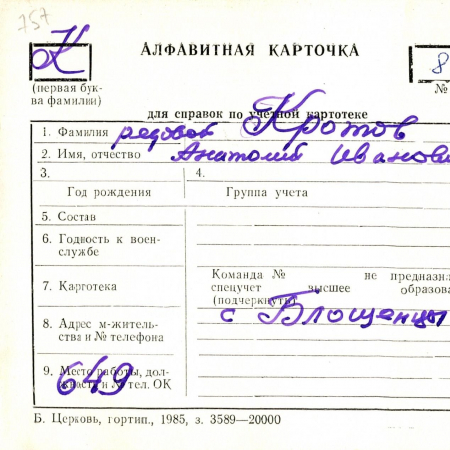 757
К
АЛФАВИТНАЯ КАРТОЧКА
8
(первая бук-
ва фамилии)
№
для справок по учетной картотеке
1. Фамилия рядовой Кротов
2. Имя, отчество Анатолий Иванови
3.
4.
Год рождения
Группа учета
5. Состав
6. Годность к воен-
службе
7. Карготека
Команда № не предназна
спецучет высшее образова
(подчеркнуть)
8. Адрес м-житель-
ства и № телефона
с Блощенцы
9. Место работы, дол-
жность и № тел. ОК
649
Б. Церковь, гортип., 1985, з. 3589—20000